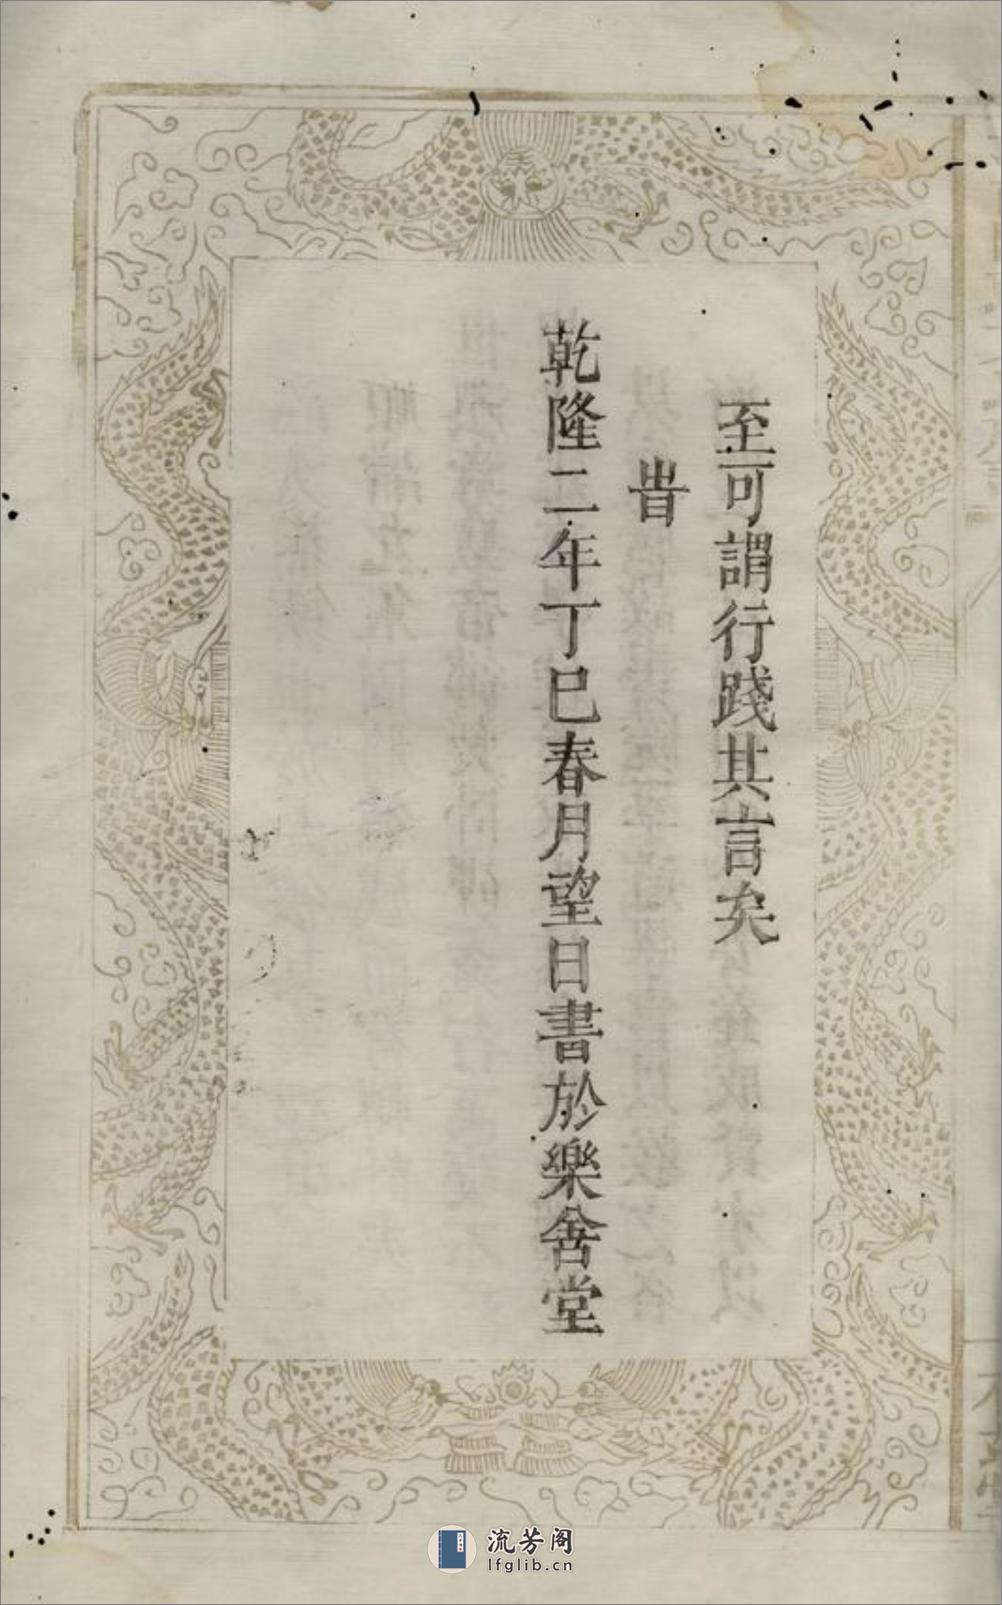 至可謂行踐其言矣
旹
乾隆二年丁巳春月望日書於樂善堂
流芳阁
lfglib.cn